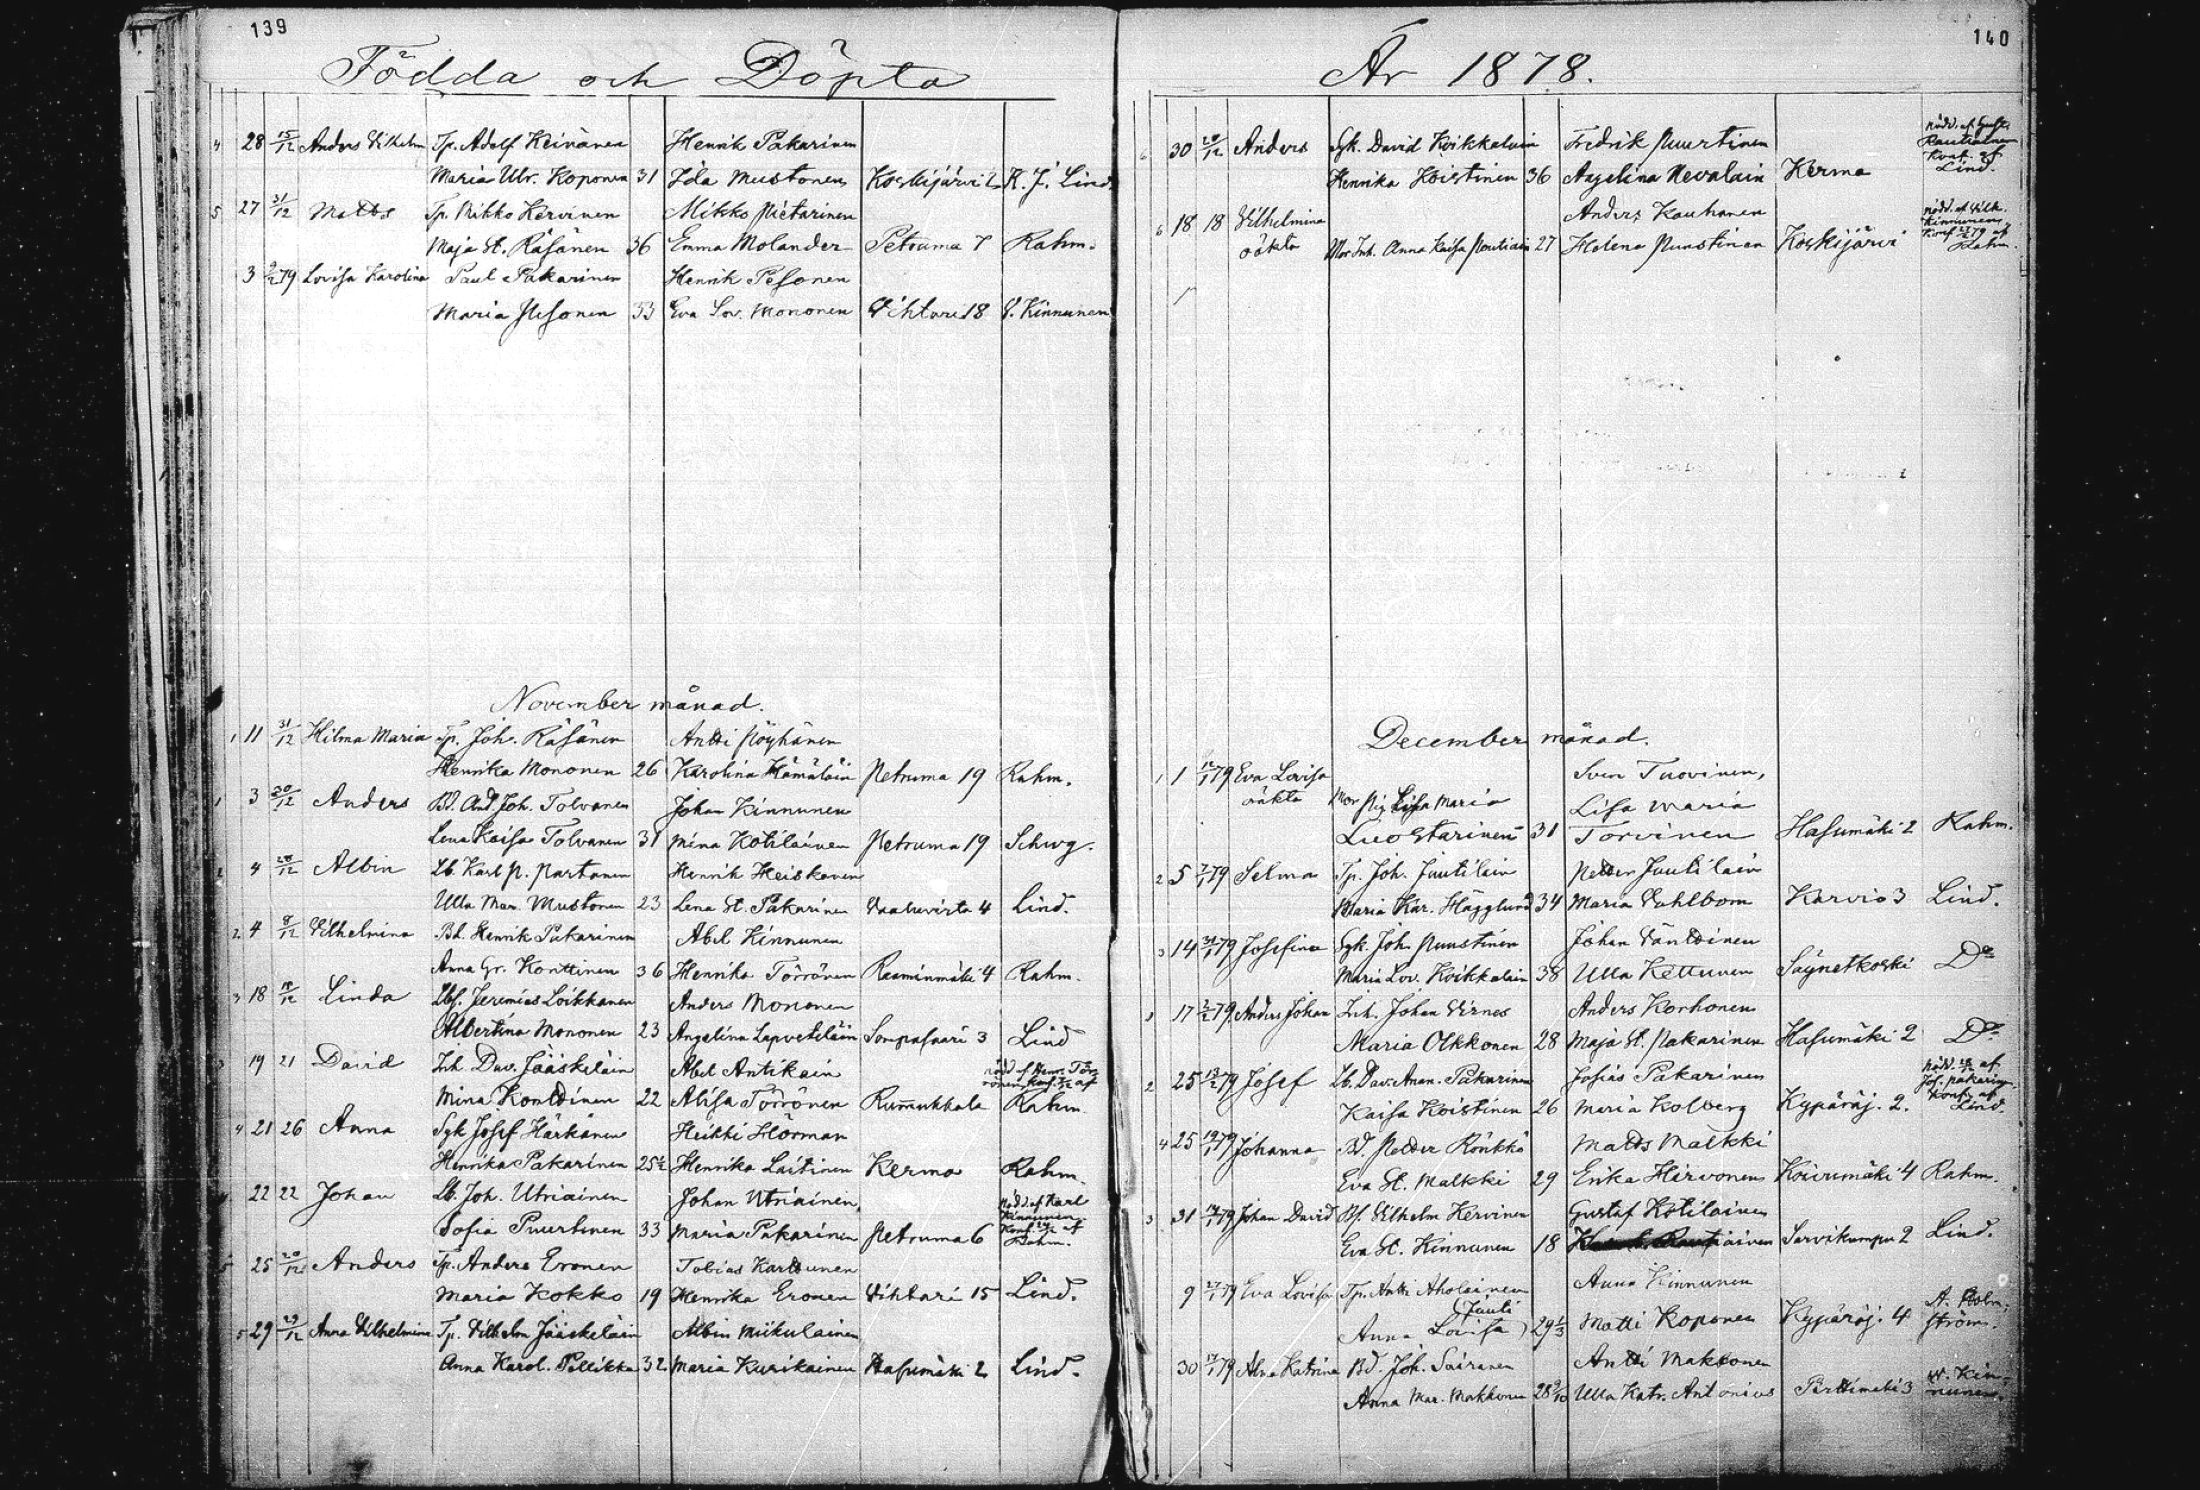 139
Födda och Döpta
4 28 15/12 Anders Vilhelm Tp. Adolf Keinänen Henrik Pakarinen
Maria Ulr. Koponen 31 Ida Mustonen Koskijärvi 2 K. J. Lind.
5 27 31/12 Matts Tp. Mikko Kervinen Mikko Pietarinen
Maja St. Räsänen 36 Emma Molander Petruma 7 Rahm.
3 2/2 79 Lovisa Karolina Paul Pakarinen Henrik Pesonen
Maria Pesonen 33 Eva Lov. Mononen Vihtari 18 V. Kinnunen
November månad.
1 11 31/12 Hilma Maria Tp. Joh. Räsänen Antti Pöyhönen
Henrika Mononen 26 Karolina Hämäläin Petruma 19 Rahm.
1 3 30/12 Anders Bd. And. Joh. Tolvanen Johan Kinnunen
Lena Kaisa Tolvanen 31 Mina Kotilainen Petruma 19 Schvg.
2 4 28/12 Albin Lb. Karl P. Partanen Henrik Heiskanen
Ulla Mar. Mustonen 23 Lena St. Pakarinen Vaaluvirta 4 Lind.
2 4 8/12 Vilhelmina Bd. Henrik Pakarinen Abel Kinnunen
Anna Gr. Konttinen 36 Henrika Törrönen Raaminmäki 4 Rahm.
3 18 /12 Linda Lbs. Jeremias Loikkanen Anders Mononen
Albertina Mononen 23 Angelina Lapveteläin Sompasaari 3 Lind
3 19 21 David Inh. Dav. Jääskeläin Abel Antikain nöd af Henr. Tör-
rönen konf. af
Mina Konttinen 22 Alisa Törrönen Rummukkala Rahm
4 21 26 Anna Sgk Josef Härkänen Heikki Hörman
Henrika Pakarinen 25½ Henrika Laitinen Kerma Rahm.
4 22 22 Johan Lb. Joh. Utriainen Johan Utriainen, Nödd. af Karl
Kinnunen
Sofia Puurtinen 33 Maria Pakarinen Petruma 6 Konf. af Rahm.
5 25 20/12 Anders Tp. Anders Eronen Tobias Karttunen
Maria Kokko 19 Henrika Eronen Vihtari 15 Lind.
5 29 29/12 Anna Vilhelmina Tp. Vilhelm Jääskeläin Albin Miikulainen
Anna Karol. Pellikka 32 Maria Kurikainen Hasumäki 2 Lind.
140
År 1878.
6 30 29/12 Anders Sgk. David Koikkalain Fredrik Puurtinen nödd. af Gust.
Rautiainen
Henrika Koistinen 36 Angelina Nevalain Kerma Konf. af Lind.
6 18 18 Vilhelmina Anders Kauhanen nödd. af Vilh.
Kinnunen
oäkta Mor Inh. Anna Kaisa Poutiain 27 Helena Puustinen Koskijärvi Konf. 79 af Rahm.
December månad.
1 1 12/1 79 Eva Lovisa Sven Tuovinen,
oäkta Mor Pig. Lisa Maria Lisa Maria
Luostarinen 31 Torvinen Hasumäki 2 Rahm.
2 5 7/1 79 Selma Tp. Joh. Juutilain Petter Juutilain
Maria Kar. Hägglund 34 Maria Dahlbom Karvio 3 Lind.
3 14 31/1 79 Josefina Sgk. Joh. Puustinen Johan Väntinen
Maria Lov. Koikkalain 38 Ulla Kettunen Säynetkoski Do
1 17 2/2 79 Anders Johan Inh. Johan Virnes Anders Korhonen
Maria Olkkonen 28 Maja St. Pakarinen Hasumäki 2 Do
2 25 13/2 79 Josef Lb. Dav. Anan. Pakarinen Josias Pakarinen nödd. af
Jos. Pakarin.
Kaisa Koistinen 26 Maria Kolberg Kypäräj. 2. Konf. af Lind.
4 25 19/1 79 Johanna Bd. Petter Rönkkö Matts Malkki
Eva St. Malkki 29 Erika Hirvonen Koivumäki 4 Rahm.
3 31 19/1 79 Johan David Bs. Vilhelm Kervinen Gustaf Kotilainen
Eva St. Kinnunen 18 Sarvikumpu 2 Lind.
9 27/1 79 Eva Lovisa Tp. Antti Aholainen Anna Kinnunen
Anna Lovisa (Juuti) 29⅓ Matti Koponen Kypäräj. 4 A. Holm-
ström.
30 17/1 79 Alma Katrina Bd. Joh. Sairanen Antti Makkonen
Anna Mar. Makkonen 28 9/10 Ulla Katr. Antonius Pärttimäki 3 W. Kin-
nunen.